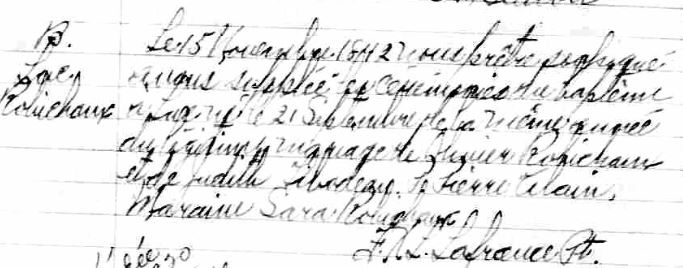 B.
Luc
Robichaux
Le 15 Novembre 1842 nous prêtre soussigné
avons supplée les cérémonies du baptême
à Luc né le 21 Septembre de la même année
du légitime mariage de Olivier Robichaux
et de Judith Thibodeau. P. Pierre
Maraine Sara Robichaux
F.X.L. Lafrance Pt.